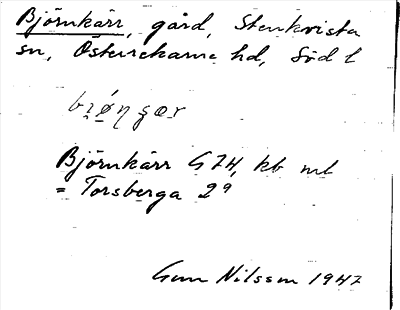 Björnkärr, gård, Stenkvista
sn, Österrekarne hd, Söd l
Björnkärr G74, kb ml
= Torsberga 2⁹
Gun Nilsson 1947